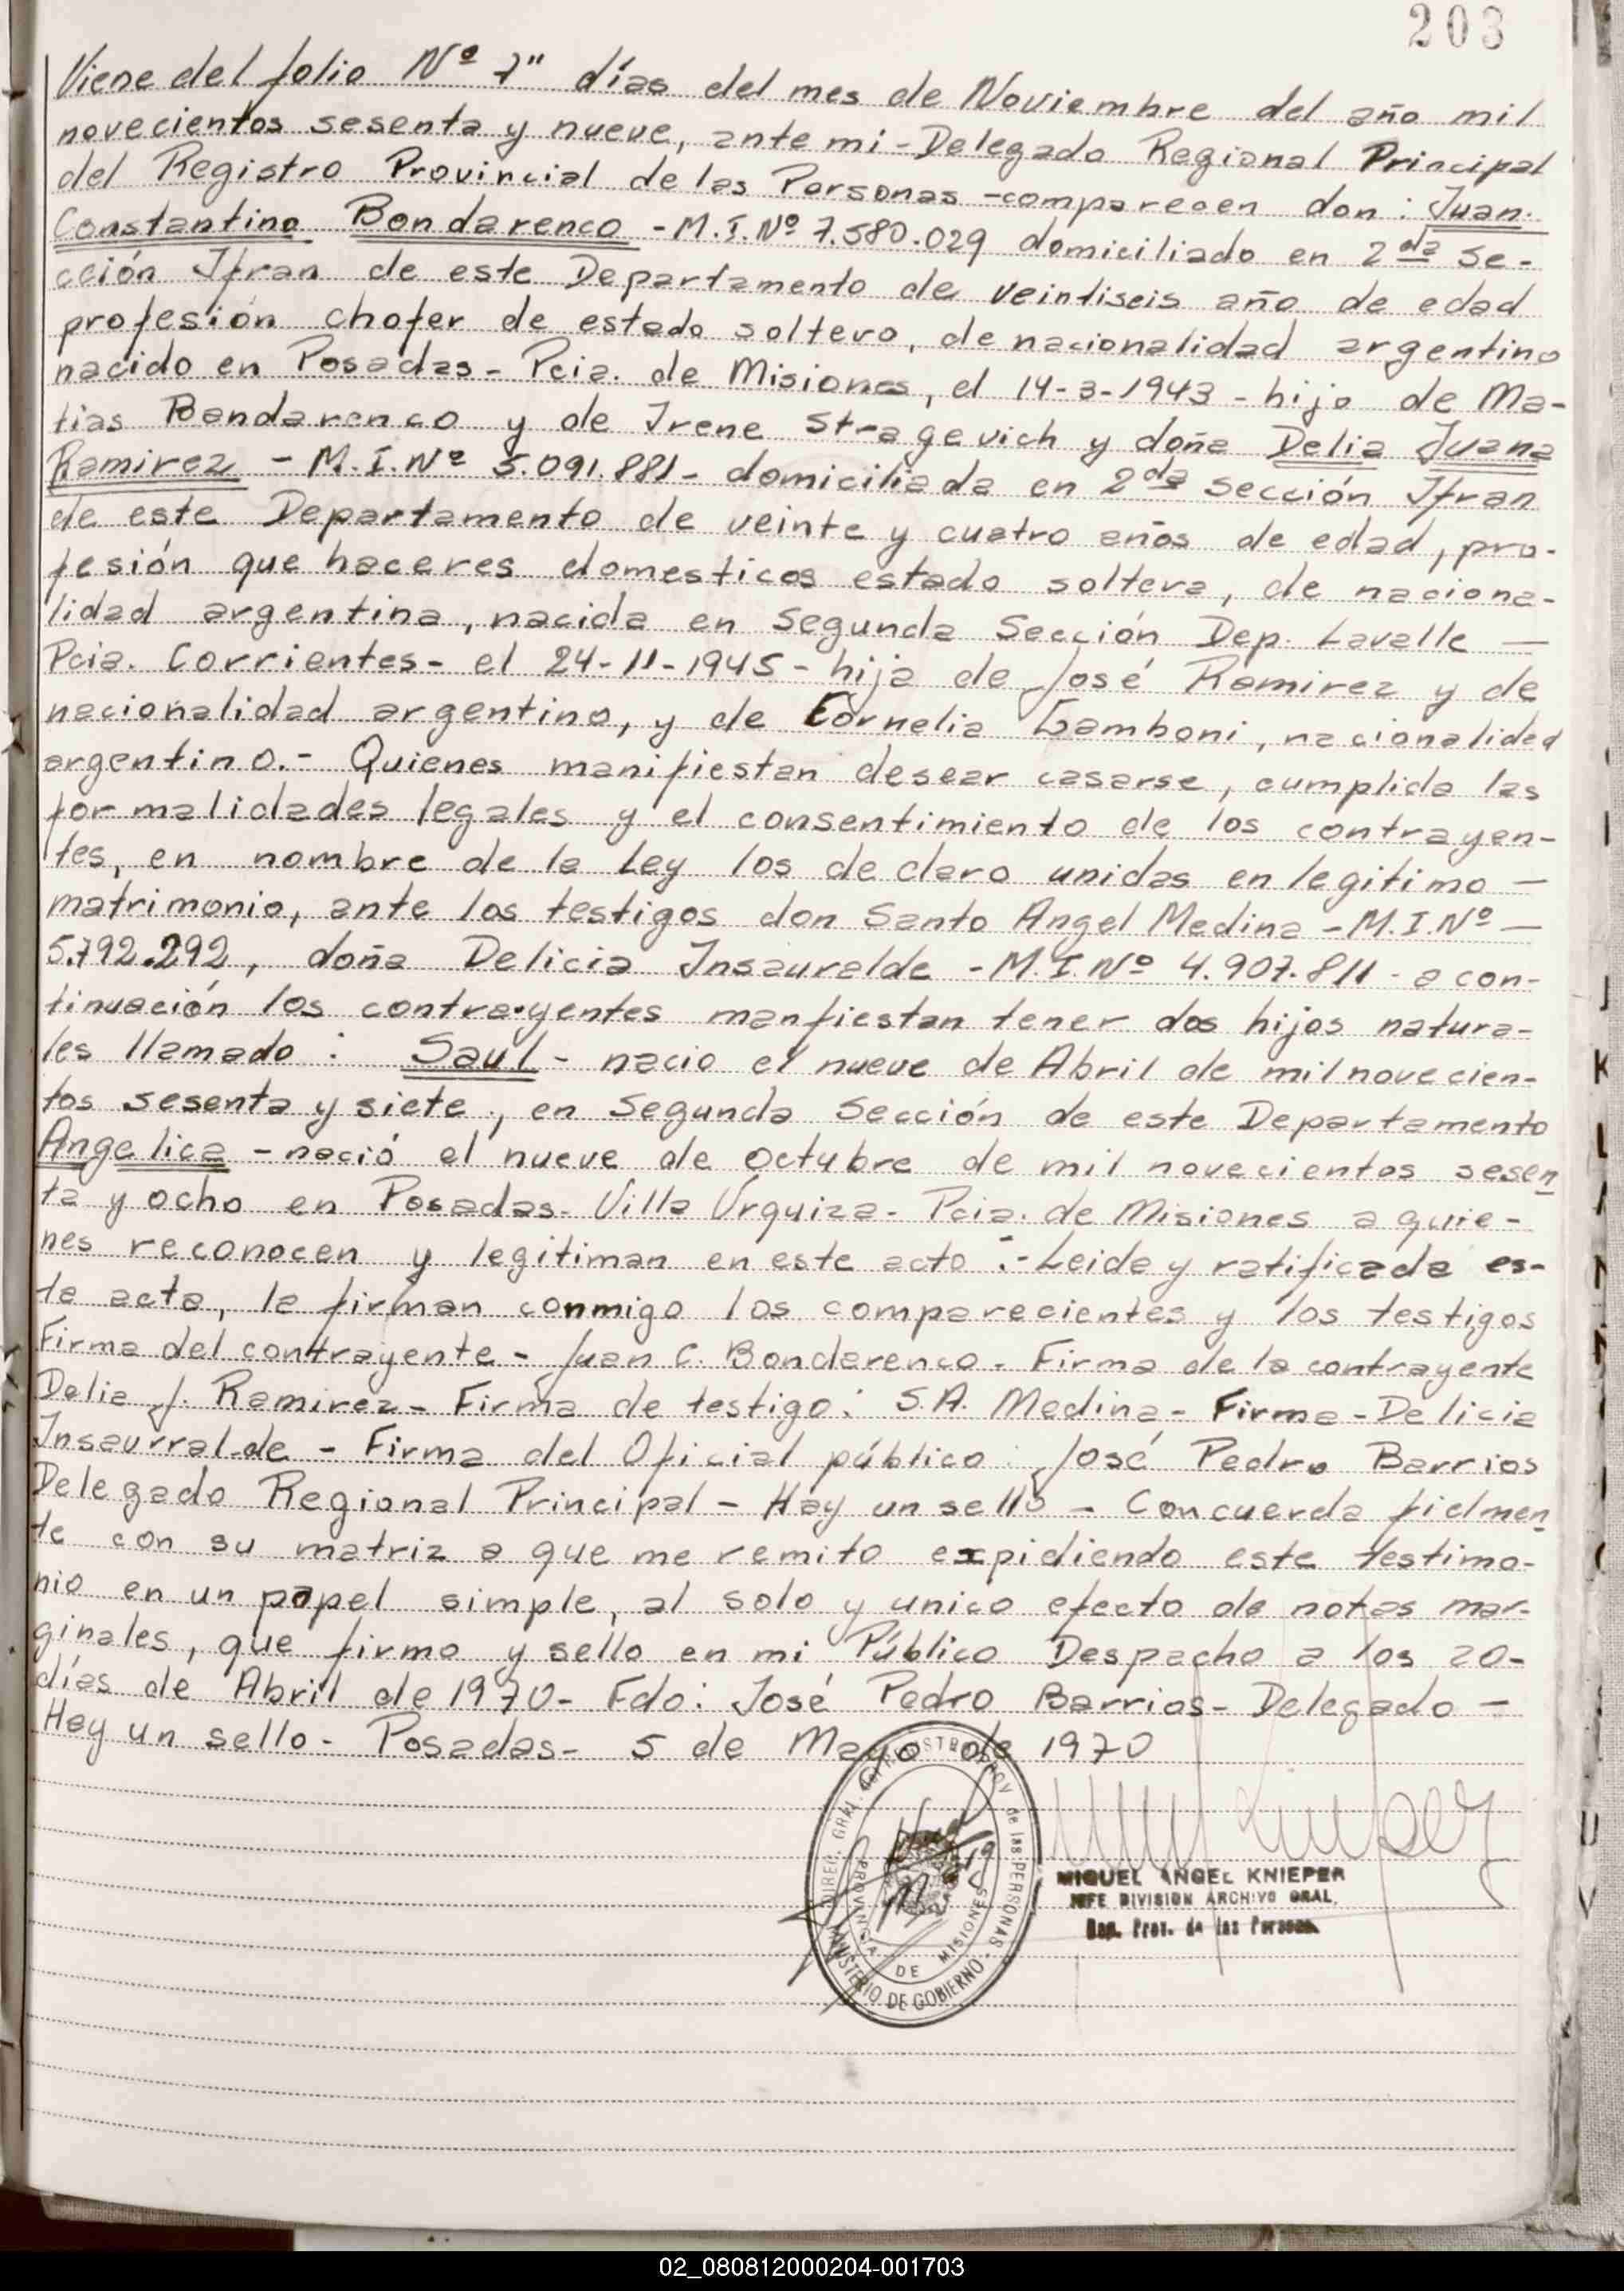 203
Viene del folio Nº 7" días del mes de Noviembre del año mil
novecientos sesenta y nueve, ante mi - Delegado Regional Principal
del Registro Provincial de las Personas - comparecen don : Juan
Constantino Bondarenco - M.I.Nº 7.580.029 domiciliado en 2da Se-
cción Ifran de este Departamento de veintiseis año de edad
profesión chofer de estado soltero, de nacionalidad argentino
nacido en Posadas - Pcia. de Misiones, el 14-3-1943 - hijo de Ma-
tias Bondarenco y de Irene Stragevich y doña Delia Juana
Ramirez - M.I.Nº 5.091.881 - domiciliada en 2da sección Ifran
de este Departamento de veinte y cuatro años de edad, pro-
fesión que haceres domesticos estado soltera, de naciona-
lidad argentina, nacida en Segunda Sección Dep. Lavalle —
Pcia. Corrientes - el 24-11-1945 - hija de José Ramirez y de
nacionalidad argentino, y de Cornelia Gamboni, nacionalidad
argentino.- Quienes manifiestan desear casarse, cumplida las
formalidades legales y el consentimiento de los contrayen-
tes, en nombre de la Ley los declaro unidas en legitimo —
matrimonio, ante los testigos don Santo Angel Medina - M.I.Nº —
5.792.292, doña Delicia Insauralde - M.I.Nº 4.907.811 - a con-
tinuación los contrayentes manfiestan tener dos hijos natura-
les llamado : Saul - nacio el nueve de Abril de mil novecien-
tos sesenta y siete, en Segunda Sección de este Departamento
Angelica - nació el nueve de Octubre de mil novecientos sesen
ta y ocho en Posadas - Villa Urquiza - Pcia. de Misiones a quie-
nes reconocen y legitiman en este acto :- Leida y ratificada es-
ta acta, la firman conmigo los comparecientes y los testigos
Firma del contrayente - Juan C. Bondarenco - Firma de la contrayente
Delia J. Ramirez - Firma de testigo : S.A. Medina - Firma - Delicia
Insaurralde - Firma del Oficial público : José Pedro Barrios
Delegado Regional Principal - Hay un sello - Concuerda fielmen
te con su matriz a que me remito expidiendo este testimo-
nio en un papel simple, al solo y unico efecto de notas mar-
ginales, que firmo y sello en mi Público Despacho a los 20-
días de Abril de 1970 - Fdo : José Pedro Barrios - Delegado -
Hay un sello - Posadas - 5 de Mayo de 1970
PROVINCIA DE MISIONES
MINISTERIO DE GOBIERNO
MIGUEL ANGEL KNIEPER
JEFE DIVISION ARCHIVO GRAL.
de las Personas
02_080812000204-001703